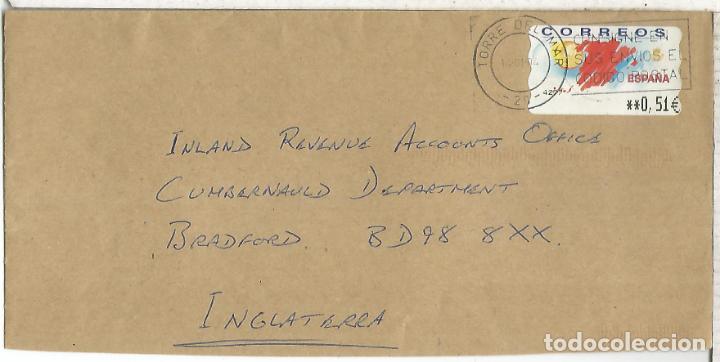 CORREOS
TORRE DEL MAR
CONSIGNE EN
SUS ENVIOS EL
CODIGO POSTAL
ESPAÑA
**0,51€
INLAND REVENUE ACCOUNTS OFFICE
CUMBERNAULD DEPARTMENT
BRADFORD. BD98 8XX.
INGLATERRA
todocoleccion.net